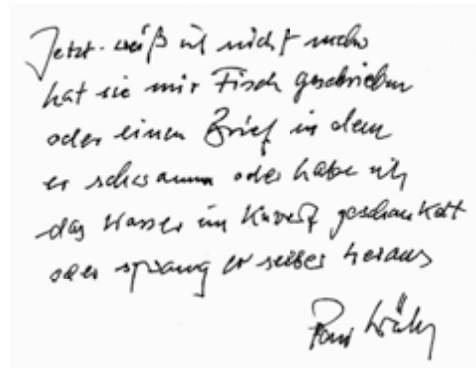 Jetzt weiß ich nicht mehr
hat sie mir Fisch geschrieben
oder einen Brief in dem
er schwamm oder habe ich
das Wasser im Kuvert geschaukelt
oder sprang er selber heraus
Paul